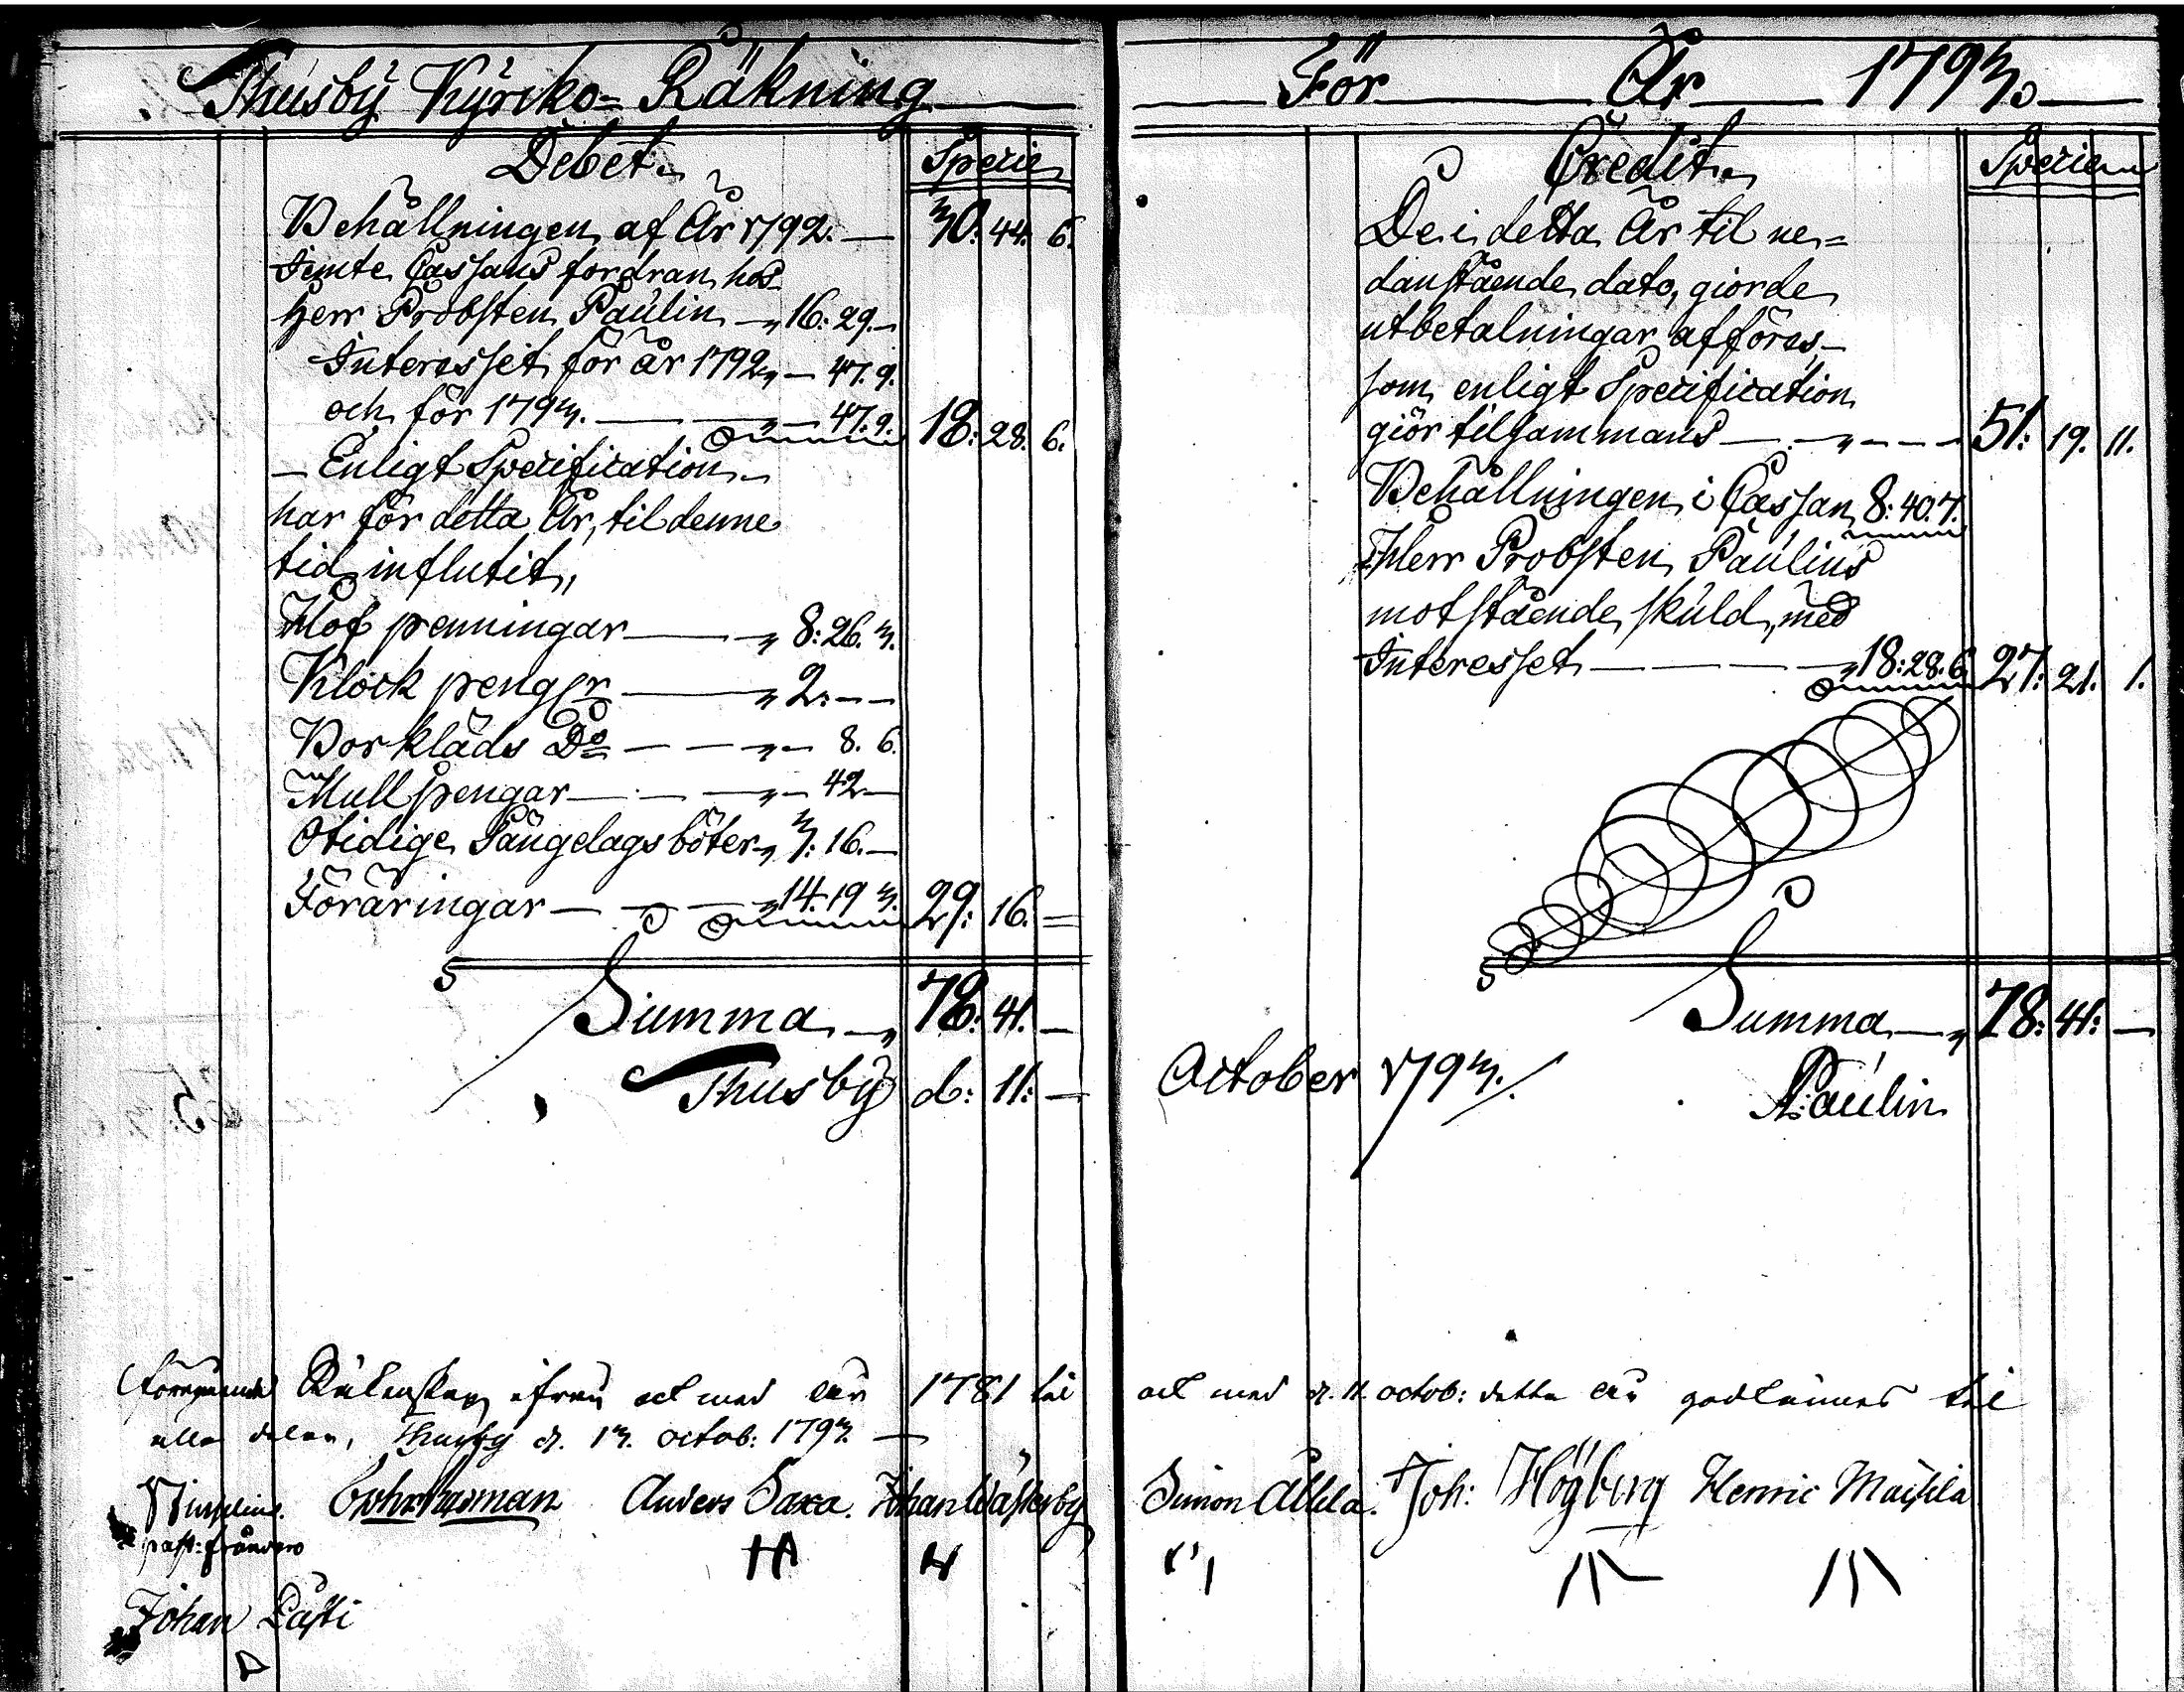 Thusby Kyrcko-Räkning
Debet.
Specie
Behållningen af År 1792. — 30. 44. 6.
Jemte Cassans fordran hos
Herr Probsten Paulin — 16: 29. —
Interesset för år 1792 — 47. 9.
och för 1793. — 47. 9. 18: 28. 6.
— Enligt Specification —
har för detta År, til denne
tid influtit,
Hof penningar — 8: 26. 3.
Klock peng:r — 2. — —
Bor kläds Do — 8. 6.
Mull pengar — 42 —
Otidige Sängelags böter 3: 16. —
Föräringar — 14. 19 3. 29: 16. =
Summa — 78: 41. —
Thusby d: 11: —
För År 1793
Credit.
Specie
De i detta År til ne=
danstående dato, giorde
utbetalningar afföres
som enligt Specification
giör tilsammans — 51: 19. 11.
Behållningen i Cassan 8: 40. 7.
Herr Probsten Paulins
motstående skuld, med
Interesset — 18: 28. 6 27: 21. 1.
Summa — 78: 41: —
October 1793.
Paulin
Räkenskap ifrån och med år 1781 til och med d. 11. octob: detta år godkännes til
alla delar, Thusby d. 13. octob: 1793. —
Anders Saxa. Johan Wästerby Simon Alkla. Joh: Högberg Henric
Johan